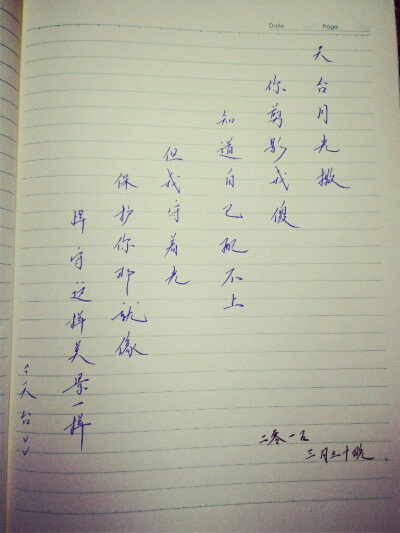 Date Page
天台月光撒
你剪影我傻
知道自己配不上
但我守着光
保护你那就像
捍守这样美景一样
《天台》
二零一五
三月三十晚